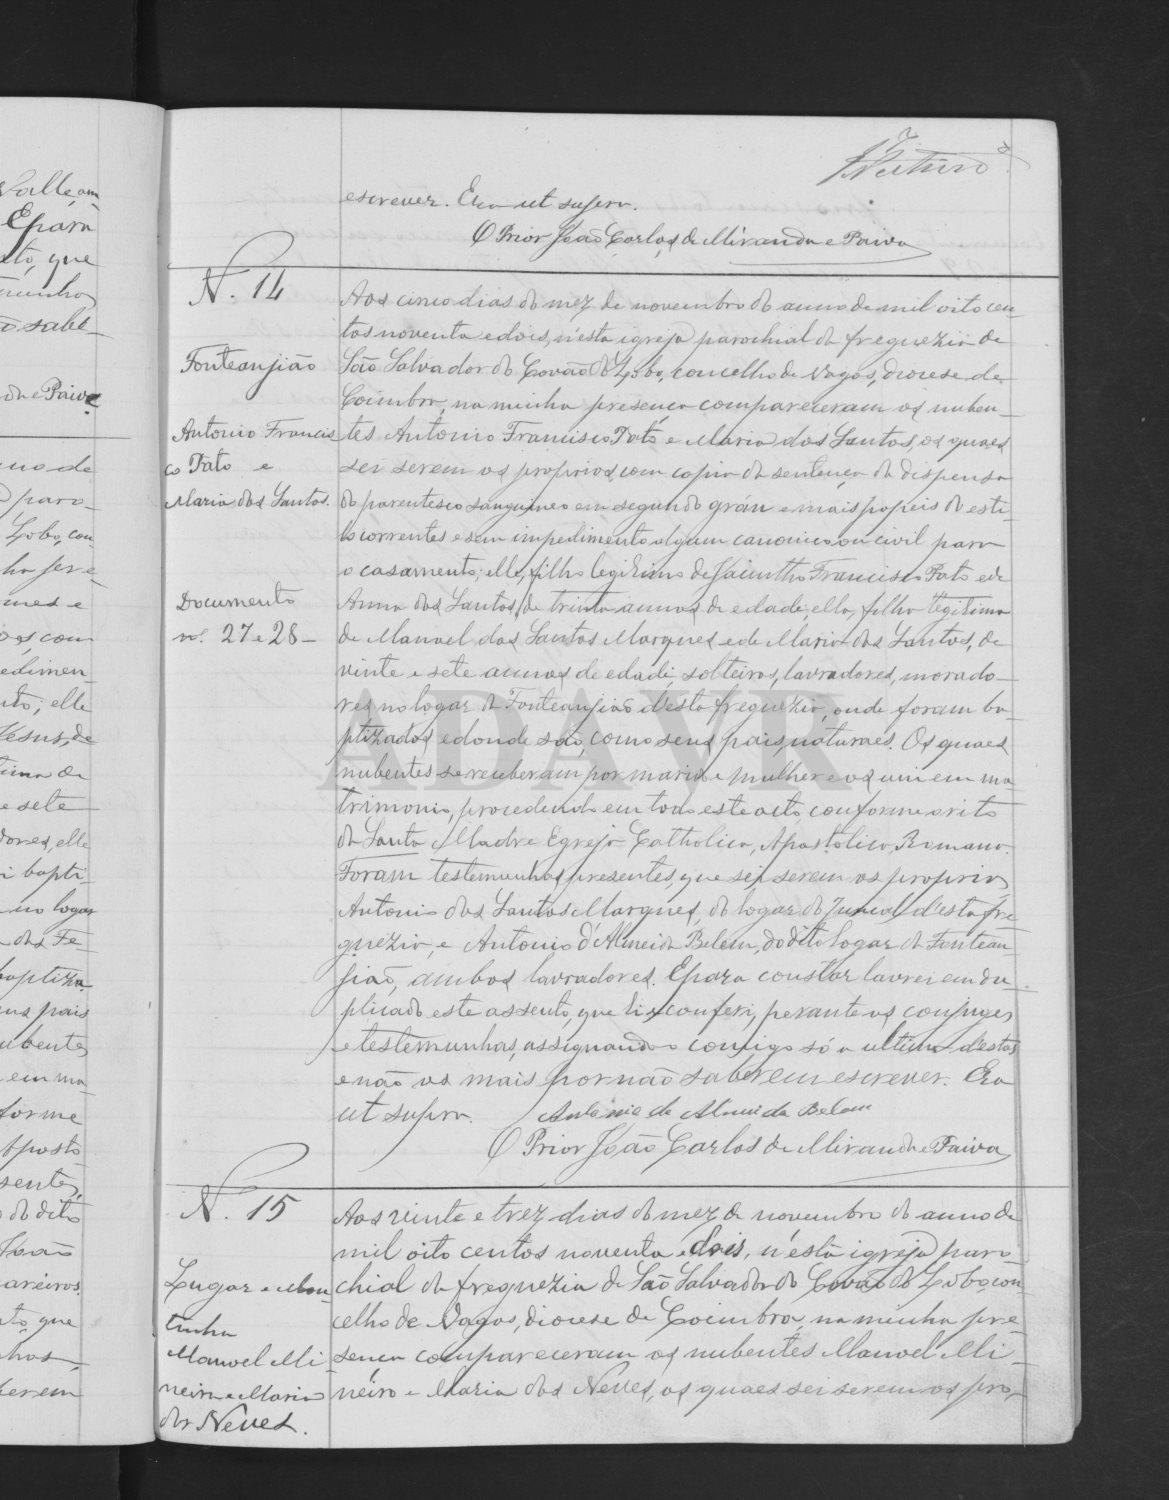 escrever. Era ut supra.
O Prior João Carlos de Miranda e Paiva
N. 14
Fonteanjião
Antonio Francis
co Fato e
Maria dos Santos.
Documento
nos. 27 e 28 –
Aos cinco dias do mez de novembro do anno de mil oito cen-
tos noventa e dois, n'esta igreja parochial da freguezia de
São Salvador do Covão do Lobo, concelho de Vagos, diocese de
Coimbra, na minha presença compareceram os nuben-
tes Antonio Francisco Fato e Maria dos Santos, os quaes
sei serem os proprios, com copia da sentença da dispensa
do parentesco sanguineo em segundo gráu e mais papeis do esti-
lo correntes e sem impedimento algum canonico ou civil para
o casamento; elle, filho legitimo de Jacintho Francisco Fato e de
Anna dos Santos, de trinta annos de edade; ella, filha legitima
de Manoel dos Santos Marques e de Maria dos Santos, de
vinte e sete annos de edade, solteiros, lavradores, morado-
res no logar de Fonteanjião d'esta freguezia, onde foram ba-
ptizados e donde são, como seus pais, naturaes. Os quaes
nubentes se receberam por marido e mulher e os uni em ma
trimonio, procedendo em todo este acto conforme o rito
da Santa Madre Egreja Catholica, Apostolica, Romana.
Foram testemunhas presentes, que sei serem os proprios,
Antonio dos Santos Marques, do logar do Juncal d'esta fre
guezia, e Antonio d'Almeida Belem, do dito logar de Fontean-
jião, ambos lavradores. E para constar lavrei em du-
plicado este assento, que li e conferi, perante os conjuges
e testemunhas, assignando comigo só a ultima d'estas
e não os mais por não saberem escrever. Era
ut supra. Antonio de Almeida Belem
O Prior João Carlos de Miranda e Paiva
N. 15
Lugar e Mou
tinha
Manoel Mi
neiro e Maria
das Neves.
Aos vinte e trez dias do mez de novembro do anno de
mil oito centos noventa e dois, n'esta igreja paro
chial da freguezia de São Salvador do Covão do Lobo, con
celho de Vagos, diocese de Coimbra, na minha pre-
sença compareceram os nubentes Manoel Mi-
neiro e Maria das Neves, os quaes sei serem os pro-
ADAVR